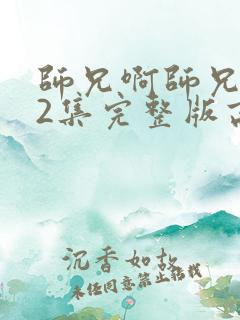 師兄啊師兄
2集完整版高
沉香如故
未經同意禁止搭載